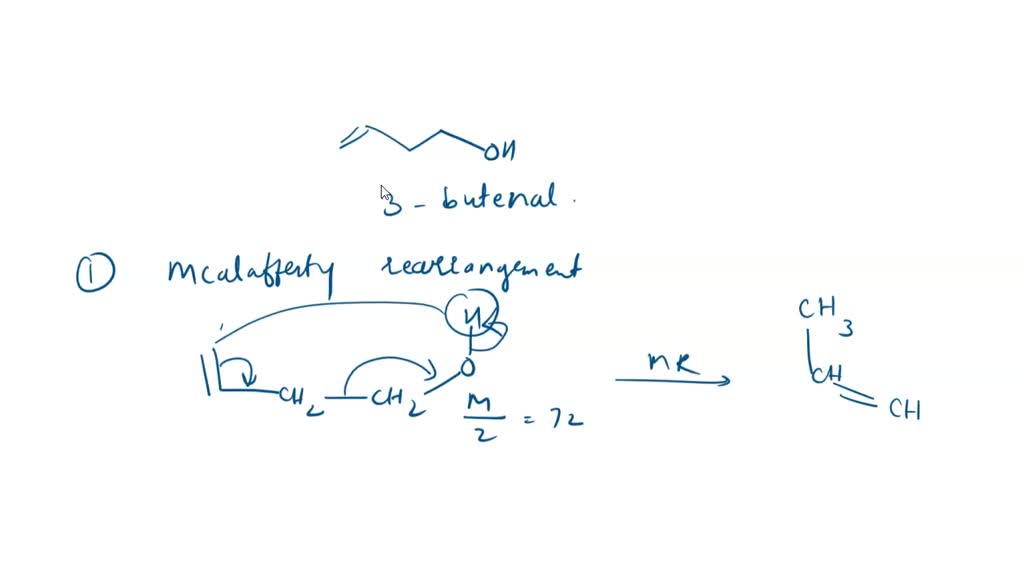 OH
3 - butenal .
① mcalafferty rearrangement
H
O
CH2 CH2
M/2 = 72
MR
CH3
CH
CH